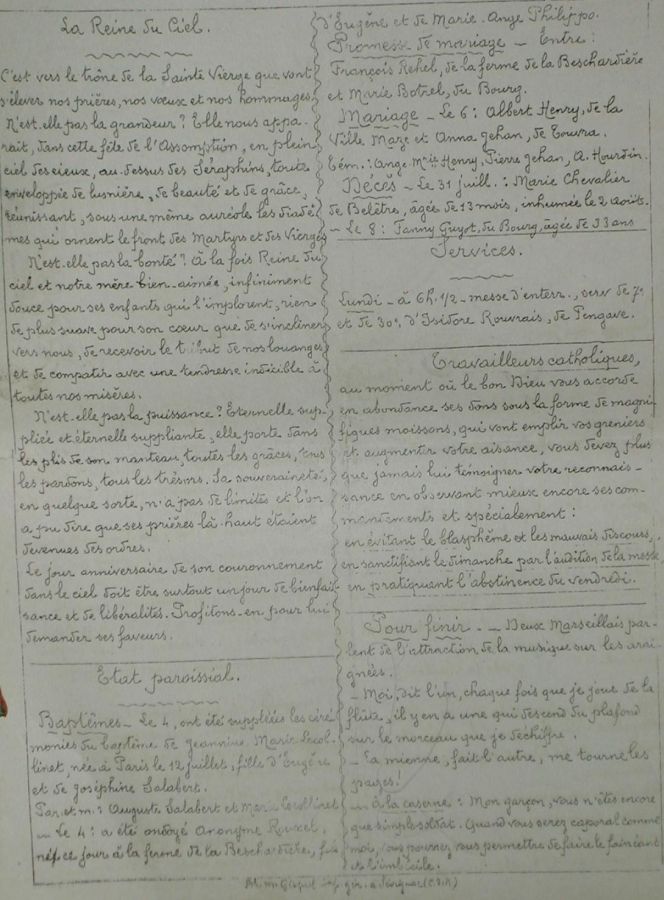 La Reine du Ciel.
C'est vers le trône de la Sainte Vierge que vont
s'élever nos prières, nos vœux et nos hommages.
N'est-elle pas la grandeur? Elle nous appa-
rait, dans cette fête de l'Assomption, en plein
ciel des cieux, au-dessus des Séraphins, toute
enveloppée de lumière, de beauté et de grâce,
réunissant, sous une même auréole les diadè-
mes qui ornent le front des Martyrs et des Vierges
N'est-elle pas la bonté? à la fois Reine du
ciel et notre mère bien-aimée, infiniment
douce pour ses enfants qui l'implorent, rien
de plus suave pour son cœur que de s'incliner
vers nous, de recevoir le tribut de nos louanges
et de compatir avec une tendresse indicible à
toutes nos misères.
N'est-elle pas la puissance? Éternelle sup-
pliée et éternelle suppliante, elle porte dans
les plis de son manteau, toutes les grâces, tous
les pardons, tous les trésors. Sa souveraineté,
en quelque sorte, n'a pas de limites et l'on
a pu dire que ses prières là-haut étaient
devenues des ordres.
Le jour anniversaire de son couronnement
dans le ciel doit être surtout un jour de bienfai-
sance et de libéralités. Profitons-en pour lui
demander ses faveurs.
Etat paroissial.
Baptêmes - Le 4, ont été suppléées les céré
monies du baptême de Jeannine Marie
née à Paris le 12 juillet, fille d'Eugène
et de Joséphine Salabert.
Par. et m.: Auguste Salabert et
- Le 4: a été ondoyé Anonyme Rouxel,
né ce jour à la ferme de la Beschardière, fils
d'Eugène et de Marie-Ange Philippo.
Promesse de mariage - Entre:
François Rehel, de la ferme de la Beschardière
et Marie Botrel, du Bourg.
Mariage - Le 6: Albert Henry, de la
Ville Maze et Anna Jehan, de Touvra.
Tém.: Ange-Mie Henry, Pierre Jehan, A. Hourdin.
Décès - Le 31 juill.: Marie Chevalier
de Belêtre, âgée de 13 mois, inhumée le 2 août.
- Le 8: Fanny Guyot, du Bourg, âgée de 33 ans
Services.
Lundi - à 6h.1/2 - messe d'enterr., serv de 7e
et de 30e, d'Isidore Rouvrais, de Pengave.
Travailleurs catholiques,
au moment où le bon Dieu vous accorde
en abondance ses dons sous la forme de magni
fiques moissons, qui vont emplir vos greniers
et augmenter votre aisance, vous devez plus
que jamais lui témoigner votre reconnais-
sance en observant mieux encore ses com-
mandements et spécialement:
en évitant le blasphême et les mauvais discours,
en sanctifiant le dimanche par l'audition de la messe
en pratiquant l'abstinence du vendredi.
Pour finir. - Deux Marseillais par-
lent de l'attraction de la musique sur les arai-
gnées.
- Moi, dit l'un, chaque fois que je joue de la
flûte, il y en a une qui descend du plafond
sur le morceau que je déchiffre.
- La mienne, fait l'autre, me tourne les
pages!
- à la caserne: Mon garçon, vous n'êtes encore
que simple soldat. Quand vous serez caporal comme
moi, vous pourrez vous permettre de faire le fainéant
et l'imbécile.